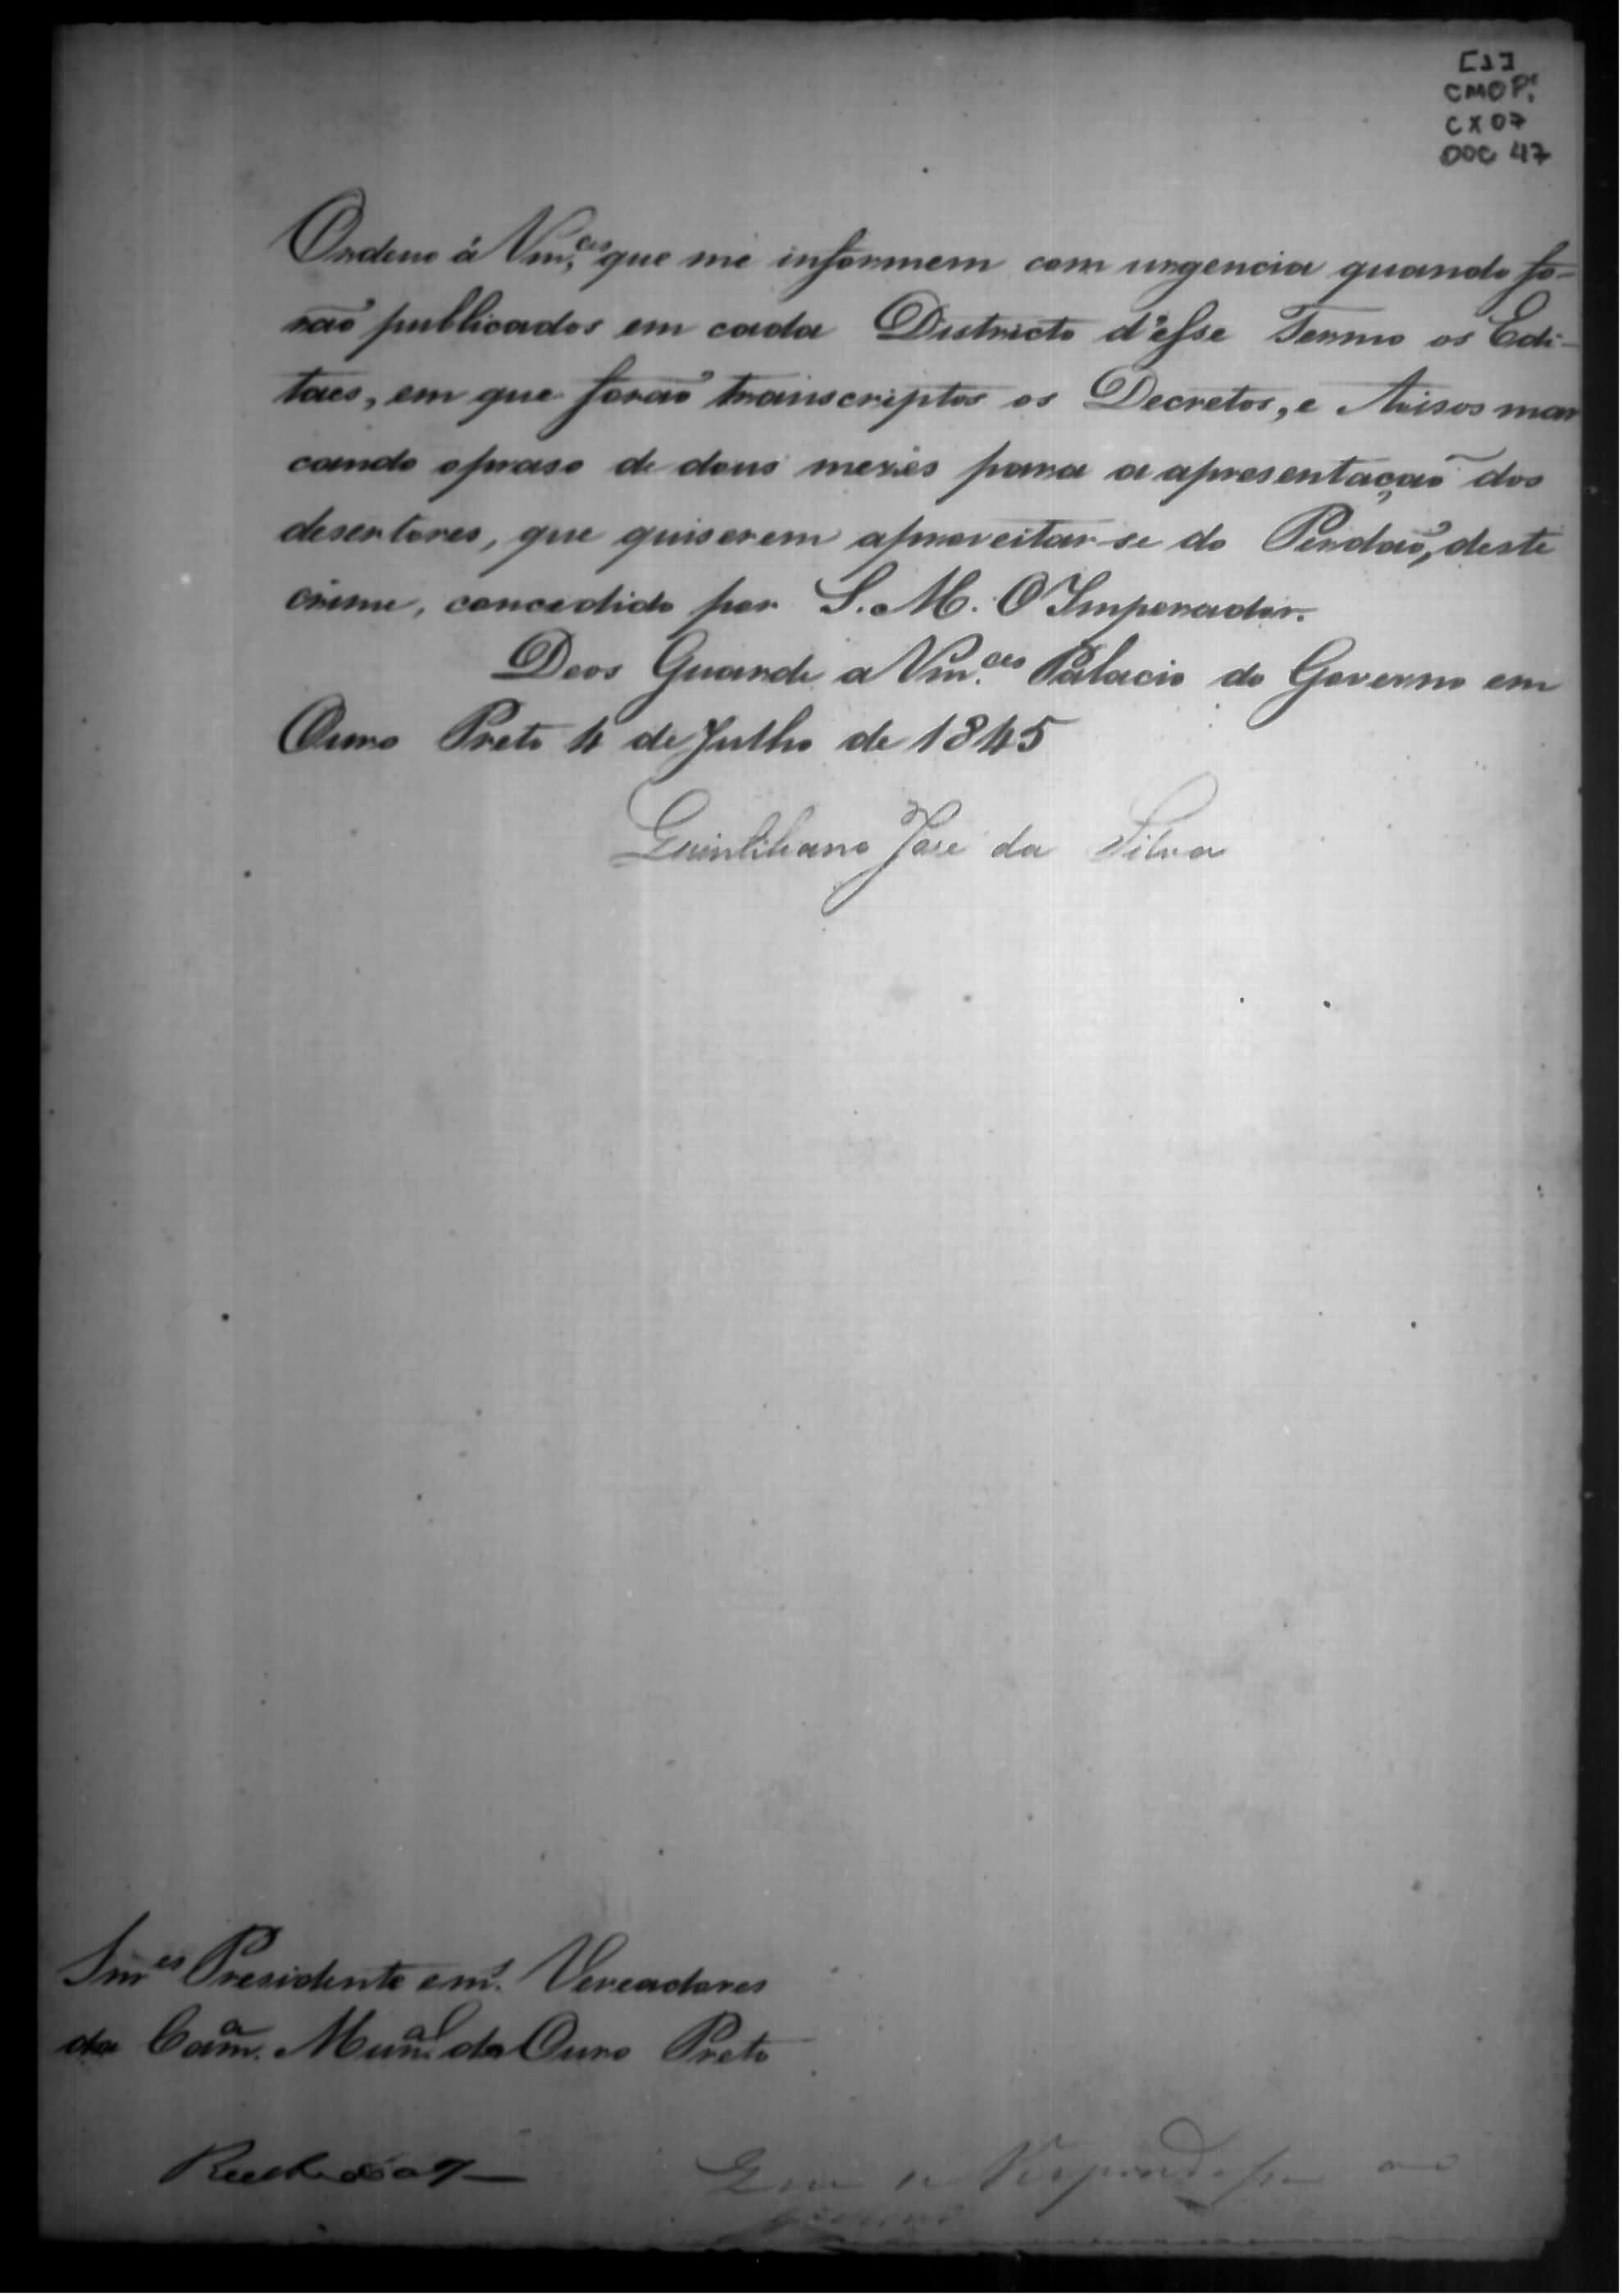 [1]
CMOP.
CX 07
DOC 47
Ordeno á Vm.ces que me informem com urgencia quando fo-
raõ publicados em cada Districto d'esse Termo os Edi-
taes, em que foraõ transcriptos os Decretos, e Avisos mar
cando opraso de dous mezes para a apresentaçaõ dos
desertores, que quiserem aproveitar-se do Perdaõ, deste
crime, concedido por S. M. O Imperador.
Deos Guarde a Vm.ces Palacio do Governo em
Ouro Preto 4 de Julho de 1845
Quintiliano José da Silva
Snr.es Presidente em.s Vereadores
da Cam.a Mun.al do Ouro Preto